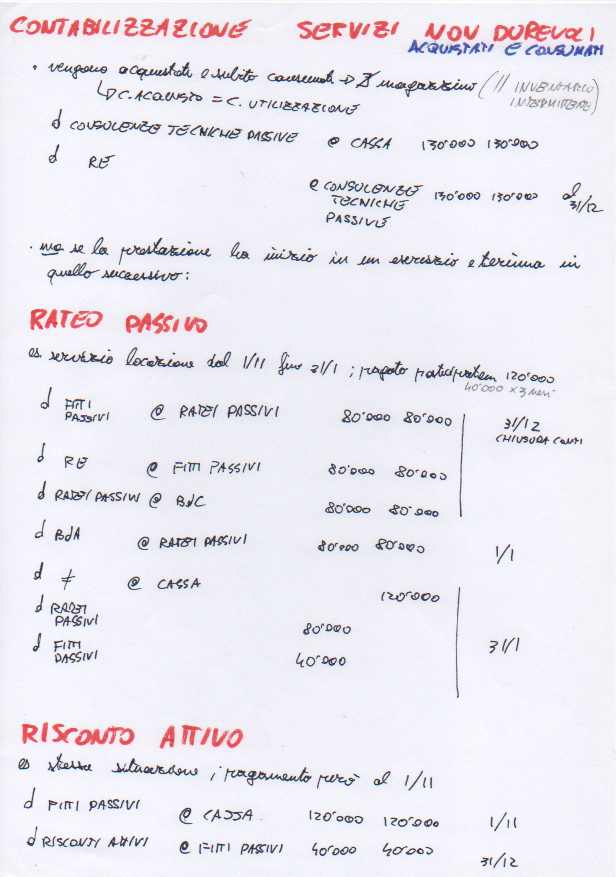 CONTABILIZZAZIONE SERVIZI NON DUREVOLI
ACQUISTATI E CONSUMATI
• vengono acquistati e subito consumati → magazzino (// INVENTARIO INTERMITTENTE)
↳ C. ACQUISTO = C. UTILIZZAZIONE
d CONSULENZE TECNICHE PASSIVE @ CASSA 130'000 130'000
d RE
@ CONSULENZE TECNICHE PASSIVE 130'000 130'000 al 31/12
• ma se la prestazione ha inizio in un esercizio e termina in
quello successivo:
RATEO PASSIVO
es. servizio locazione dal 1/11 fino 31/1; pagato posticipatam 120'000
40'000 x 3 mesi
d FITTI PASSIVI @ RATEI PASSIVI 80'000 80'000 31/12
CHIUSURA CONTI
d RE @ FITTI PASSIVI 80'000 80'000
d RATEI PASSIVI @ BdC 80'000 80'000
d BdA @ RATEI PASSIVI 80'000 80'000 1/1
d ≠ @ CASSA 120'000
d RATEI PASSIVI 80'000
d FITTI PASSIVI 40'000 31/1
RISCONTO ATTIVO
es stessa situazione; pagamento però al 1/11
d FITTI PASSIVI @ CASSA 120'000 120'000 1/11
d RISCONTI ATTIVI @ FITTI PASSIVI 40'000 40'000 31/12